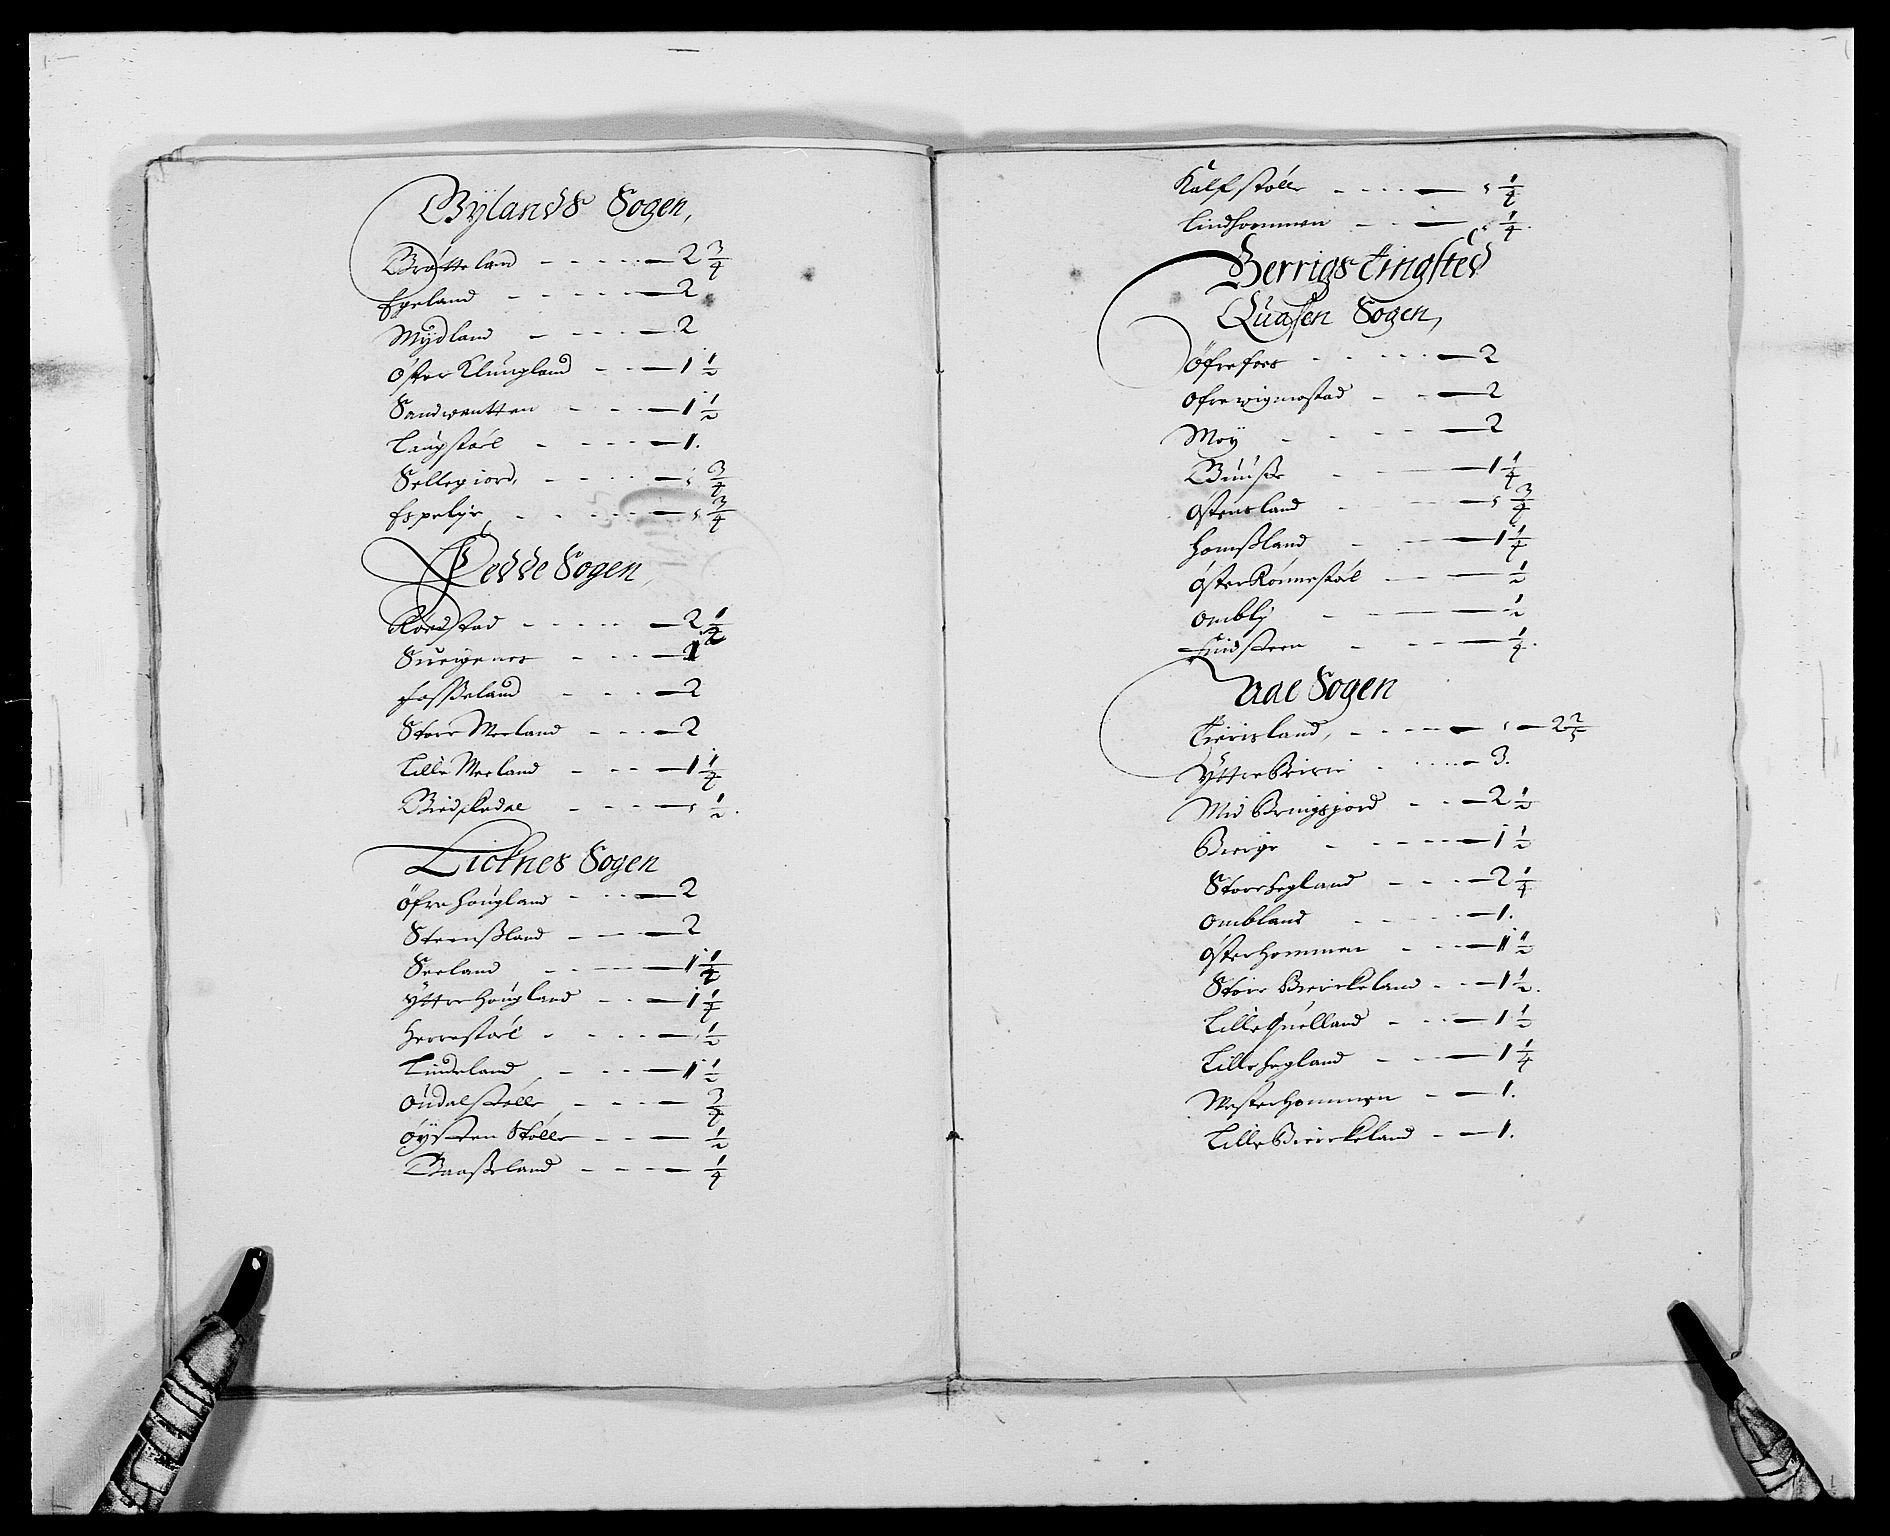 Bylands Sogen,
Brötteland - - - - - 2 3/4
Egeland - - - - 2
Mydland - - - - 2
Öster Klungland - - - 1 1/2
Sandventten - - - 1 1/2
Laugstöel - - - - 1.
Sellegiord, - - - - 3/4
Espelijd - - - - 3/4
Fedde Sogen,
Röedstad - - - - 2 1/2
Sueigenes - - - 1
Fosseland - - - 2
Store Meeland - - - 2
Lille Meeland - - - 1 1/4
Birdskedal - - - 1/2.
Licknes Sogen
Öfre Hougland - - - 2
Steensland - - - 2
Seeland - - - 1 1/2
Yttre Hougland - - - 1 1/4
Herrestöel - - - - 1/2
Lindeland - - - 1 1/2
Oudalstölle - - - - 3/4
Öysten Stölle - - - 1/2
Baasseland - - - - 1/4
Kalfstölle - - - - 1/4
Lindhommen - - - 1/4.
Berrigs tingsted
Quasen Sogen,
Öfrefoss - - - - 2
Ofre vigmostad - - - 2
Moy - - - - 2
Buusse - - - 1 1/4
Ostensland - - - 3/4
Homsland - - - 1 1/4
Öster Rönnestöel - - - 1/2
Ombly - - - 1/2
Lindsteen - - - 1/4.
Aae Sogen
Tiörisland, - - - - - 2 2/5
Yttre - - - 3.
Mid Bringsjord - - - 2 1/2
Bierge - - - - 1 1/2
Store Hegland - - - 2 1/4
Ombland - - - - 1.
Öster Hommen - - - 1 1/2
Store Birckeland - - - 1 1/2.
Lille Quelland - - - 1 1/2
Lille Hegland - - - 1 1/4
Vester Hommen - - 1.
Lille Birckeland - - 1.